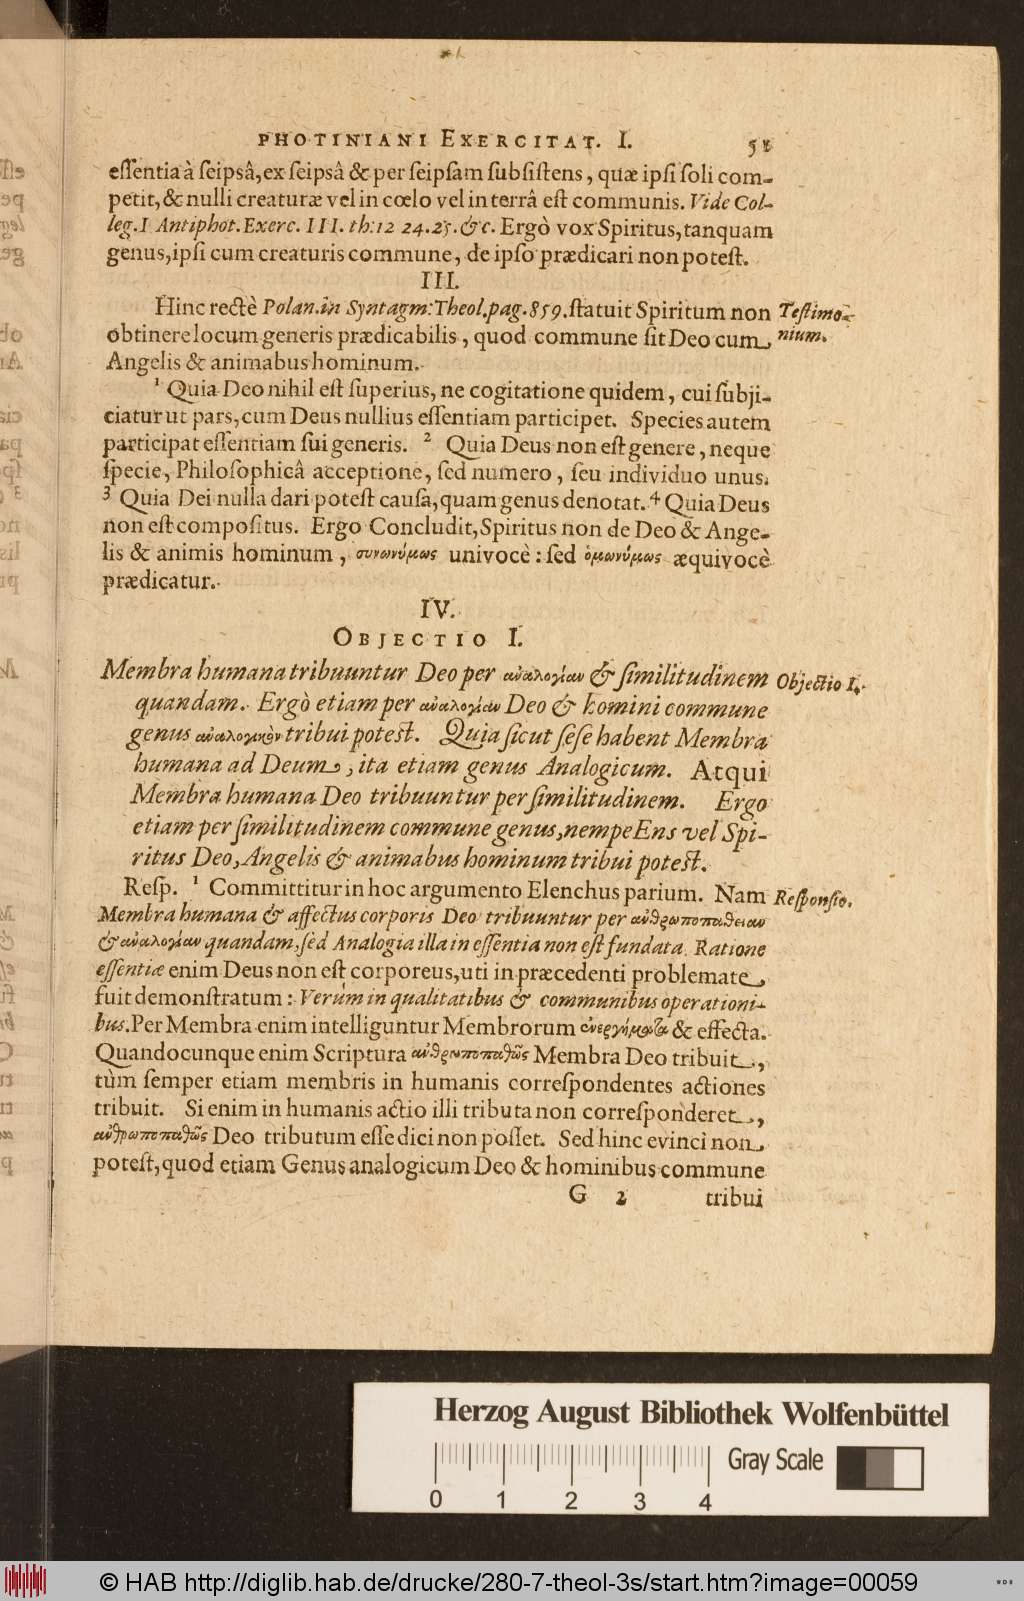 PHOTINIANI EXERCITAT. I. 51
eſſentia à ſeipsâ, ex ſeipsâ & per ſeipſam ſubſiſtens, quæ ipſi ſoli com-
petit, & nulli creaturæ vel in cœlo vel in terrâ eſt communis. Vide Col-
leg. I Antiphot. Exerc. III. th: 12 24. 25. &c. Ergò vox Spiritus, tanquam
genus, ipſi cum creaturis commune, de ipſo prædicari non poteſt.
III.
Hinc rectè Polan. in Syntagm: Theol. pag. 859. ſtatuit Spiritum non
Teſtimo-
obtinere locum generis prædicabilis, quod commune ſit Deo cum
nium.
Angelis & animabus hominum.
1 Quia Deo nihil eſt ſuperius, ne cogitatione quidem, cui ſubji-
ciatur ut pars, cum Deus nullius eſſentiam participet. Species autem
participat eſſentiam ſui generis. 2 Quia Deus non eſt genere, neque
ſpecie, Philoſophicâ acceptione, ſed numero, ſeu individuo unus.
3 Quia Dei nulla dari poteſt cauſa, quam genus denotat. 4 Quia Deus
non eſt compoſitus. Ergo Concludit, Spiritus non de Deo & Ange-
lis & animis hominum, συνωνύμως univocè: ſed ὁμωνύμως æquivocè
prædicatur.
IV.
OBJECTIO I.
Membra humana tribuuntur Deo per ἀναλογίαν & ſimilitudinem
Objectio I.
quandam. Ergò etiam per ἀναλογίαν Deo & homini commune
genus ἀναλογικὸν tribui poteſt. Quia ſicut ſeſe habent Membra
humana ad Deum, ita etiam genus Analogicum. Atqui
Membra humana Deo tribuuntur per ſimilitudinem. Ergo
etiam per ſimilitudinem commune genus, nempe Ens vel Spi-
ritus Deo, Angelis & animabus hominum tribui poteſt.
Reſp. 1 Committitur in hoc argumento Elenchus parium. Nam
Reſponſio.
Membra humana & affectus corporis Deo tribuuntur per ἀνθρωποπάθειαν
& ἀναλογίαν quandam, ſed Analogia illa in eſſentia non eſt fundata. Ratione
eſſentiæ enim Deus non eſt corporeus, uti in præcedenti problemate
fuit demonſtratum: Verùm in qualitatibus & communibus operationi-
bus. Per Membra enim intelliguntur Membrorum ἐνεργήματα & effecta.
Quandocunque enim Scriptura ἀνθρωποπαθῶς Membra Deo tribuit,
tùm ſemper etiam membris in humanis correſpondentes actiones
tribuit. Si enim in humanis actio illi tributa non correſponderet,
ἀνθρωποπαθῶς Deo tributum eſſe dici non poſſet. Sed hinc evinci non
poteſt, quod etiam Genus analogicum Deo & hominibus commune
G 2 tribui
Herzog August Bibliothek Wolfenbüttel
Gray Scale
0 1 2 3 4
© HAB http://diglib.hab.de/drucke/280-7-theol-3s/start.htm?image=00059